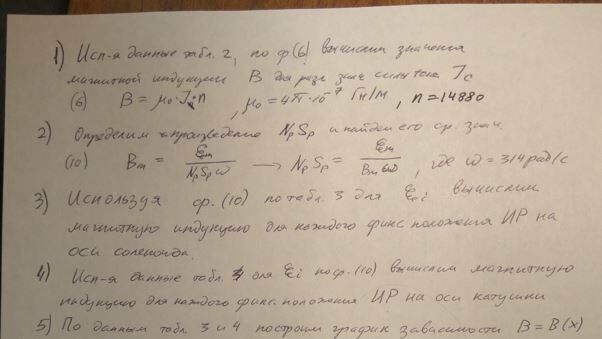 1) Исп-я данные табл. 2, по ф(6) вычислим значения
магнитной индукции B для разл. знач. силы тока Jc
(6) B = μ₀·J·n , μ₀ = 4π·10⁻⁷ Гн/м , n = 14880
2) Определим произведение NpSp и найдем его ср. знач.
(10) Bm = Ɛm / NpSp ω → NpSp = Ɛm / Bm ω , где ω = 314 рад/с
3) Используя ф. (10) по табл. 3 для Ɛi вычислим
магнитную индукцию для каждого фикс положения ИР на
оси соленоида.
4) Исп-я данные табл. 4 для Ɛi по ф. (10) вычислим магнитную
индукцию для каждого фикс. положения ИР на оси катушки
5) По данным табл 3 и 4 построим график зависимости B = B(x)